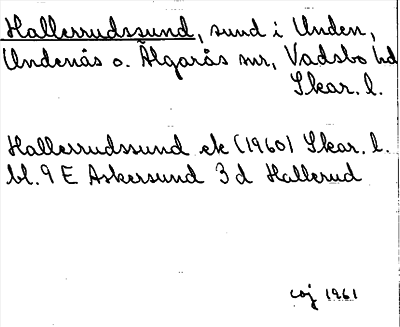 Hallerrudssund, sund i Unden,
Undenäs o. Älgarås snr, Vadsbo hd
Skar. l.
Hallerrudssund ek (1960) Skar. l.
bl. 9 E Askersund 3 d Hallerud
1961